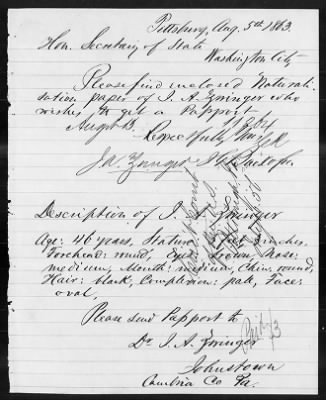 Pittsburg, Aug. 5th 1863.
Hon. Secretary of State
Washington City
Please find inclosed Naturali-
sation paper of J. A. Zminger who
wishes to get a Passport
Respectfully
Description of J. A. Zminger
Age: 46 years, Stature: 5 feet inches,
Forehead: round, Eyes: brown, Nose:
medium, Mouth: medium, Chin: round,
Hair: black, Complexion: pale, Face:
oval,
Please send Passport to
Dr. J. A. Zminger
Johnstown
Cambria Co Pa.